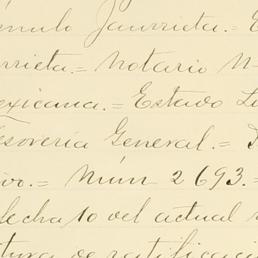 Jaurrieta.=
rrieta.= Notario N
exicana.= Estado L
esorería General.=
ivo.= Núm 2693.=
fecha 10 del actual
tura de ratificaci